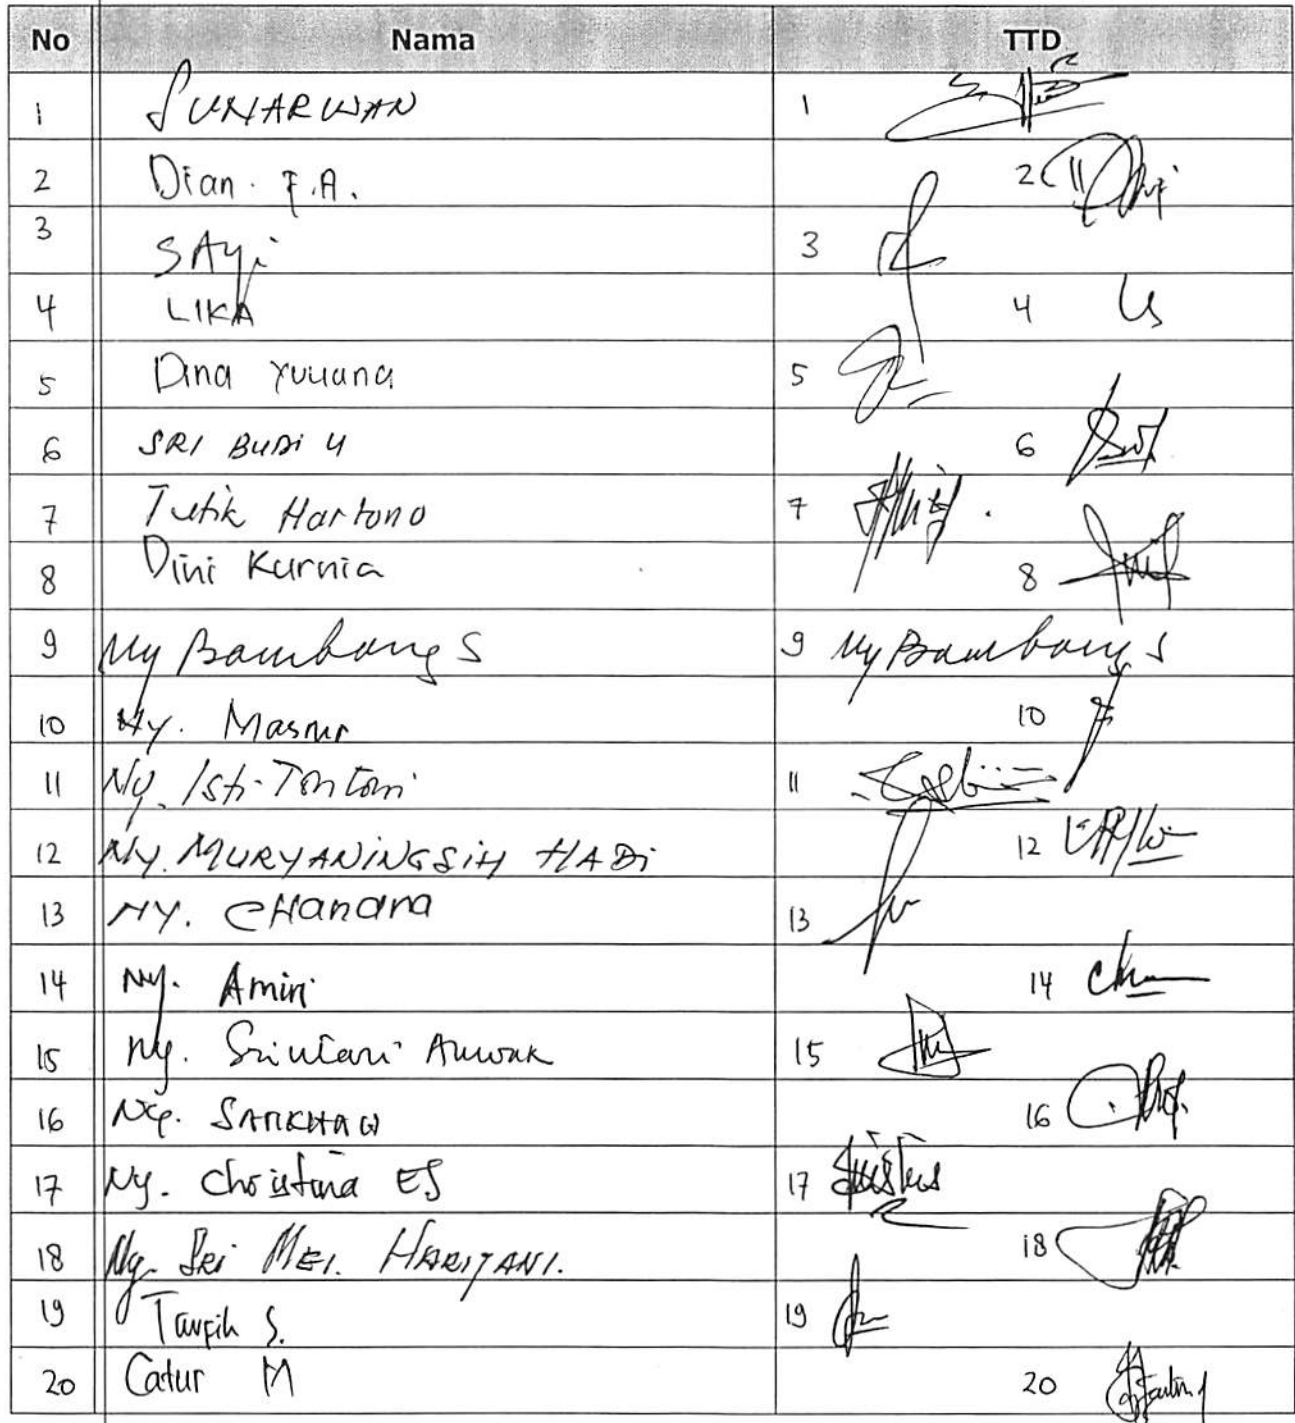 No Nama TTD
1 SUNARWAN 1
2 Dian. F.A. 2
3 SAyi 3
4 LIKA 4
5 Dina Yuliana 5
6 SRI BUDi U 6
7 Tutik Hartono 7
8 Dini Kurnia 8
9 Ny Bambang S 9 Ny Bambang S
10 Ny. Masnur 10
11 Ny. Isti Tontoni 11
12 NY. MURYANINGSIH HADi 12
13 NY. CHandra 13
14 Ny. Amin 14
15 Ny. 15
16 Ny. 16
17 Ny. Christina ES 17
18 Ny. SRi MEI. HARIYANI. 18
19 Taufik S. 19
20 Catur M 20